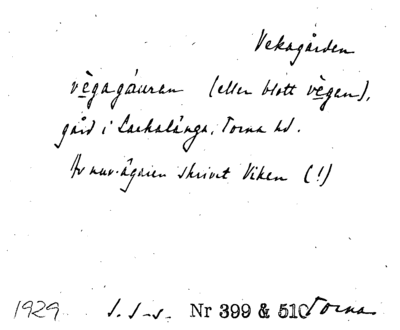 Vekagården
vègagáuran (eller blott vègan),
gård i Lackalänga, Torna hd.
Av nuv. ägaren skrivet Viken (!)
1929 S. S-s. Nr 399 & 510 Torna